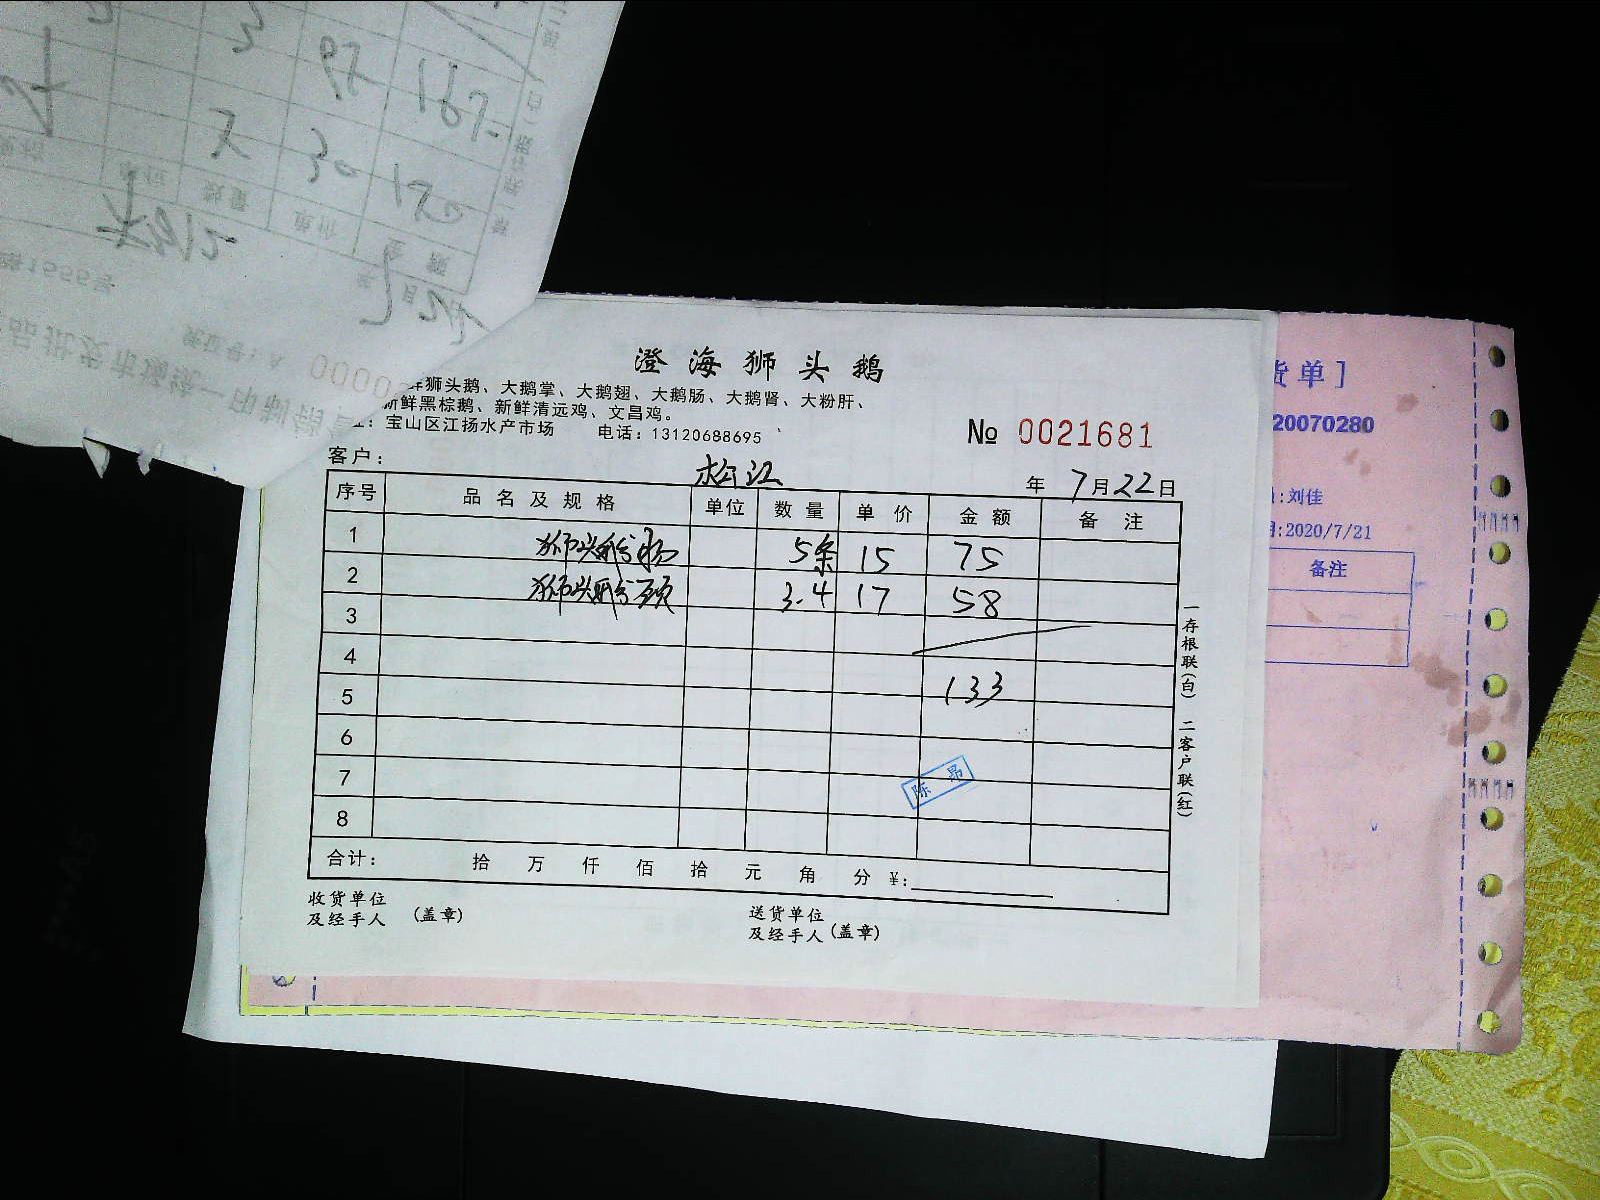 澄海狮头鹅
狮头鹅、大鹅掌、大鹅翅、大鹅肠、大鹅肾、大粉肝、
新鲜黑棕鹅、新鲜清远鸡、文昌鸡。
宝山区江扬水产市场 电话：13120688695
№ 0021681
客户： 松江 年 7月22日
序号 品名及规格 单位 数量 单价 金额 备注
1 狮头鹅肠 5条 15 75
2 狮头鹅颈 3.4 17 58
3
4
5 133
6
7
8
陈昂
合计： 拾 万 仟 佰 拾 元 角 分 ¥:
收货单位
及经手人 (盖章)
送货单位
及经手人 (盖章)
一存根联(白) 二客户联(红)
货单]
20070280
:刘佳
:2020/7/21
备注
3 97 167-
5 30 150
数量 单价 金额
松江
1656号
品批发市场统一印制
0000